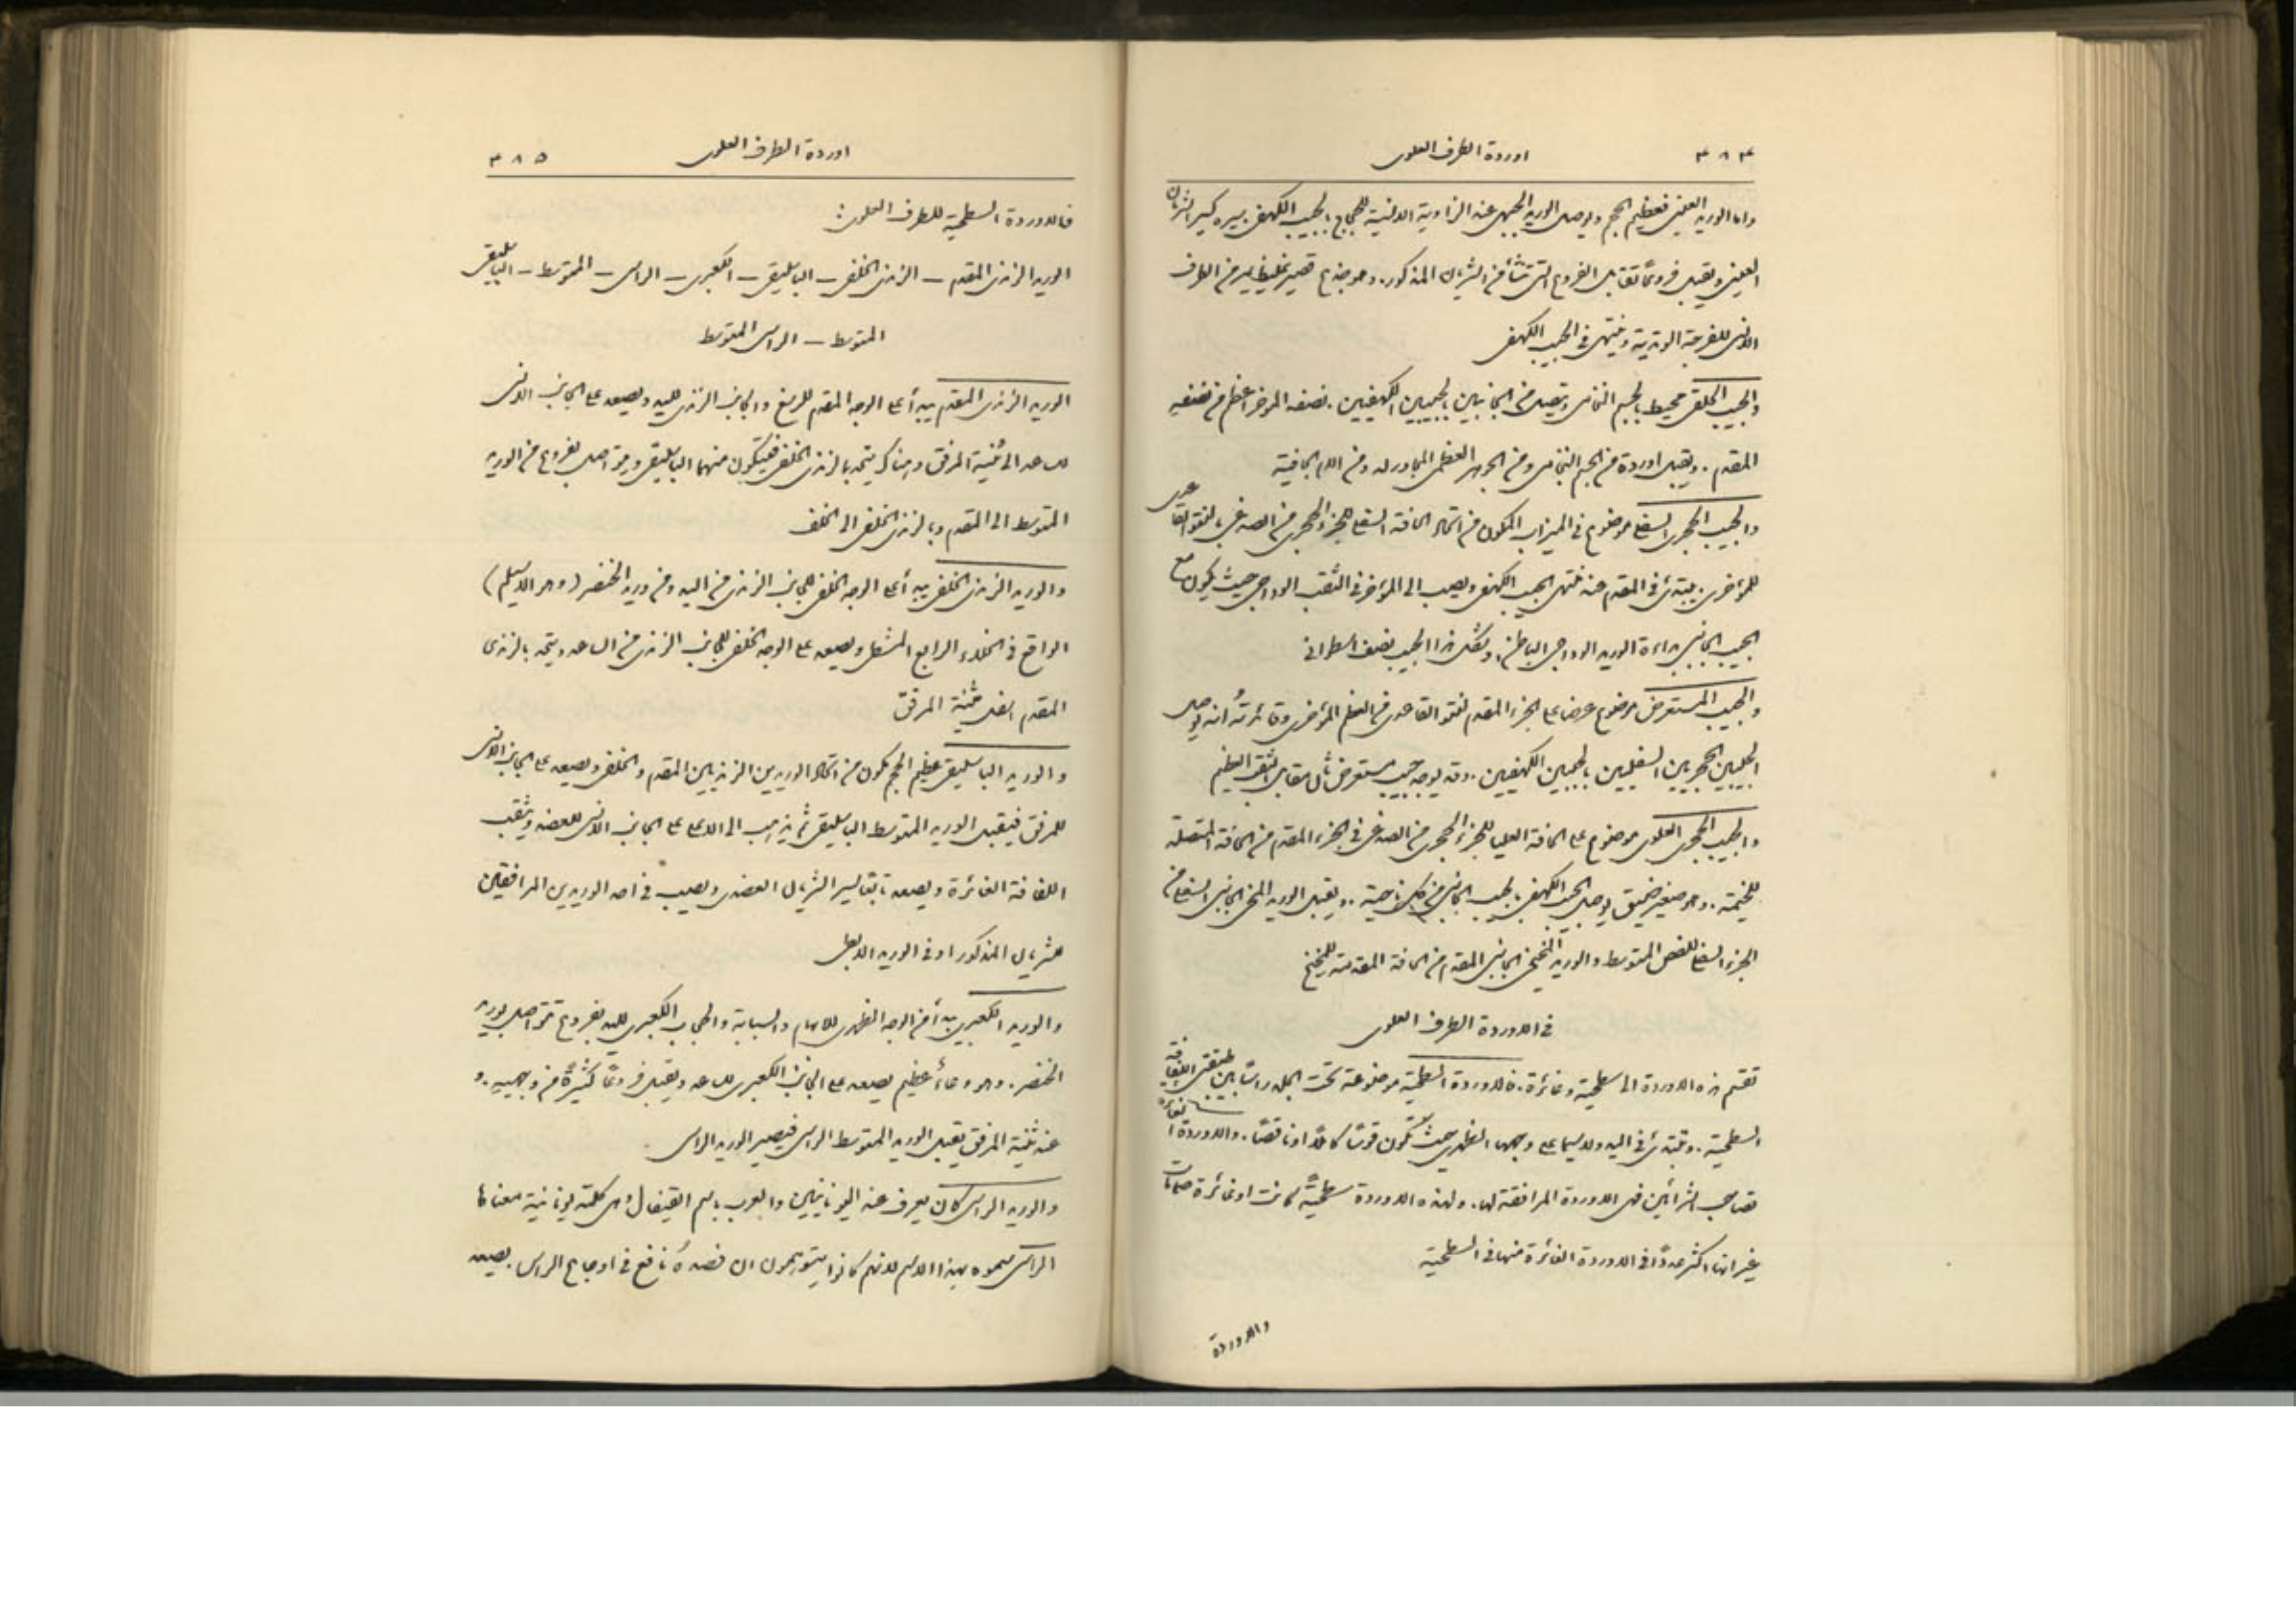 ٣٨٤ اوردة الطرف العلوى
واما الوريد العينى فعظيم الحجم ويوصل الوريد الجبهى عند الزاوية الانسية للحجاج بالجيب الكهفى يسير كسير الشريان
العينى ويقبل فروعًا تقابل الفروع التى تنشأ من الشريان المذكور. وهو جذع قصير غليظ يمر من الطرف
الانسى للفرجة الوتدية وينتهى فى الجيب الكهفى
والجيب الحلقى محيط بالجسم النخامى ويتصل من الجانبين بالجيبين الكهفيين. نصفه المؤخر اعظم من نصفه
المقدم. ويقبل اوردة من الجسم النخامى ومن الجوهر العظمى المجاور له ومن الام الجافية
والجيب الحجرى السفلى موضوع فى الميزاب المكون من اتحاد الحافة السفلى للجزء الحجرى من الصدغى بالنتو القاعدى
للمؤخرى. يبتدئ فى المقدم عند منتهى الجيب الكهفى ويصب الى المؤخر فى الثقب الوداجى حيث يكون مع
الجيب الجانبى بداءة الوريد الوداجى الباطن. وشكل هذا الجيب نصف اسطوانى
والجيب المستعرض موضوع عرضا على الجزء المقدم لنتو القاعدى من العظم المؤخرى وفائدته انه يوصل
الجيبين الحجريين السفليين بالجيبين الكهفيين. وقد يوجد جيب مستعرض ثان مقابل الثقب العظيم
والجيب الحجرى العلوى موضوع على الحافة العليا للجزء الحجرى من الصدغى فى الجزء المقدم من الحافة المتصلة
للخيمة. وهو صغير ضيق يوصل الجيب الكهفى بالجيب الجانبى من كل ناحية. ويقبل الوريد المخى الجانبى السفلى من
الجزء السفلى للفص المتوسط والوريد المخيخى الجانبى المقدم من الحافة المقدمة للمخيخ
فى الاوردة الطرف العلوى
تقسم هذه الاوردة الى سطحية وغائرة. فالاوردة السطحية موضوعة تحت الجلد راسًا بين طبقتى اللفافة
السطحية. وتبتدئ فى اليد ولا سيما على وجهها الظهرى حيث تكون قوسًا كاملًا او ناقصًا. والاوردة الغائرة
تصاحب الشرائين فهى الاوردة المرافقة لها. ولهذه الاوردة سطحيةً كانت او غائرة صمامات
غير انها اكثر عددًا فى الاوردة الغائرة منها فى السطحية
والاوردة
اوردة الطرف العلوى ٣٨٥
فالاوردة السطحية للطرف العلوى:
الوريد الزندى المقدم — الزندى الخلفى — الباسليقى — الكعبرى — الراسى — المتوسط — الباسليقى
المتوسط — الراسى المتوسط
الوريد الزندى المقدم يبدأ على الوجه المقدم للرسغ والجانب الزندى لليد ويصعد على الجانب الانسى
للساعد الى ثنية المرفق وهناك يتحد بالزندى الخلفى فيتكون منهما الباسليقى ويتواصل بفروع من الوريد
المتوسط الى المقدم وبالزندى الخلفى الى الخلف
والوريد الزندى الخلفى يبدأ على الوجه الخلفى للجانب الزندى من اليد ومن وريد الخنصر (وهو الاسيلم)
الواقع فى الخلاء الرابع المشطى ويصعد على الوجه الخلفى للجانب الزندى من الساعد ويتحد بالزندى
المقدم اسفل ثنية المرفق
والوريد الباسليقى عظيم الحجم مكون من اتحاد الوريدين الزنديين المقدم والخلفى ويصعد على الجانب الانسى
للمرفق فيقبل الوريد المتوسط الباسليقى ثم يذهب الى الاعلى على الجانب الانسى للعضد ويثقب
اللفافة الغائرة ويصعد تابعًا لسير الشريان العضدى ويصب فى احد الوريدين المرافقين
للشريان المذكور او فى الوريد الابطى
والوريد الكعبرى يبدأ من الوجه الظهرى للابهام والسبابة والجانب الكعبرى لليد بفروع تتواصل بوريد
الخنصر. وهو وعاء عظيم يصعد على الجانب الكعبرى للساعد ويقبل فروعًا كثيرةً من وجهيه. و
عند ثنية المرفق يقبل الوريد المتوسط الراسى فيصير الوريد الراسى
والوريد الراسى كان يعرف عند اليونانيين والعرب باسم القيفال وهى كلمة يونانية معناها
الراسى سموه بهذا الاسم لانهم كانوا يتوهمون ان فصدهُ نافع فى اوجاع الراس يصعد